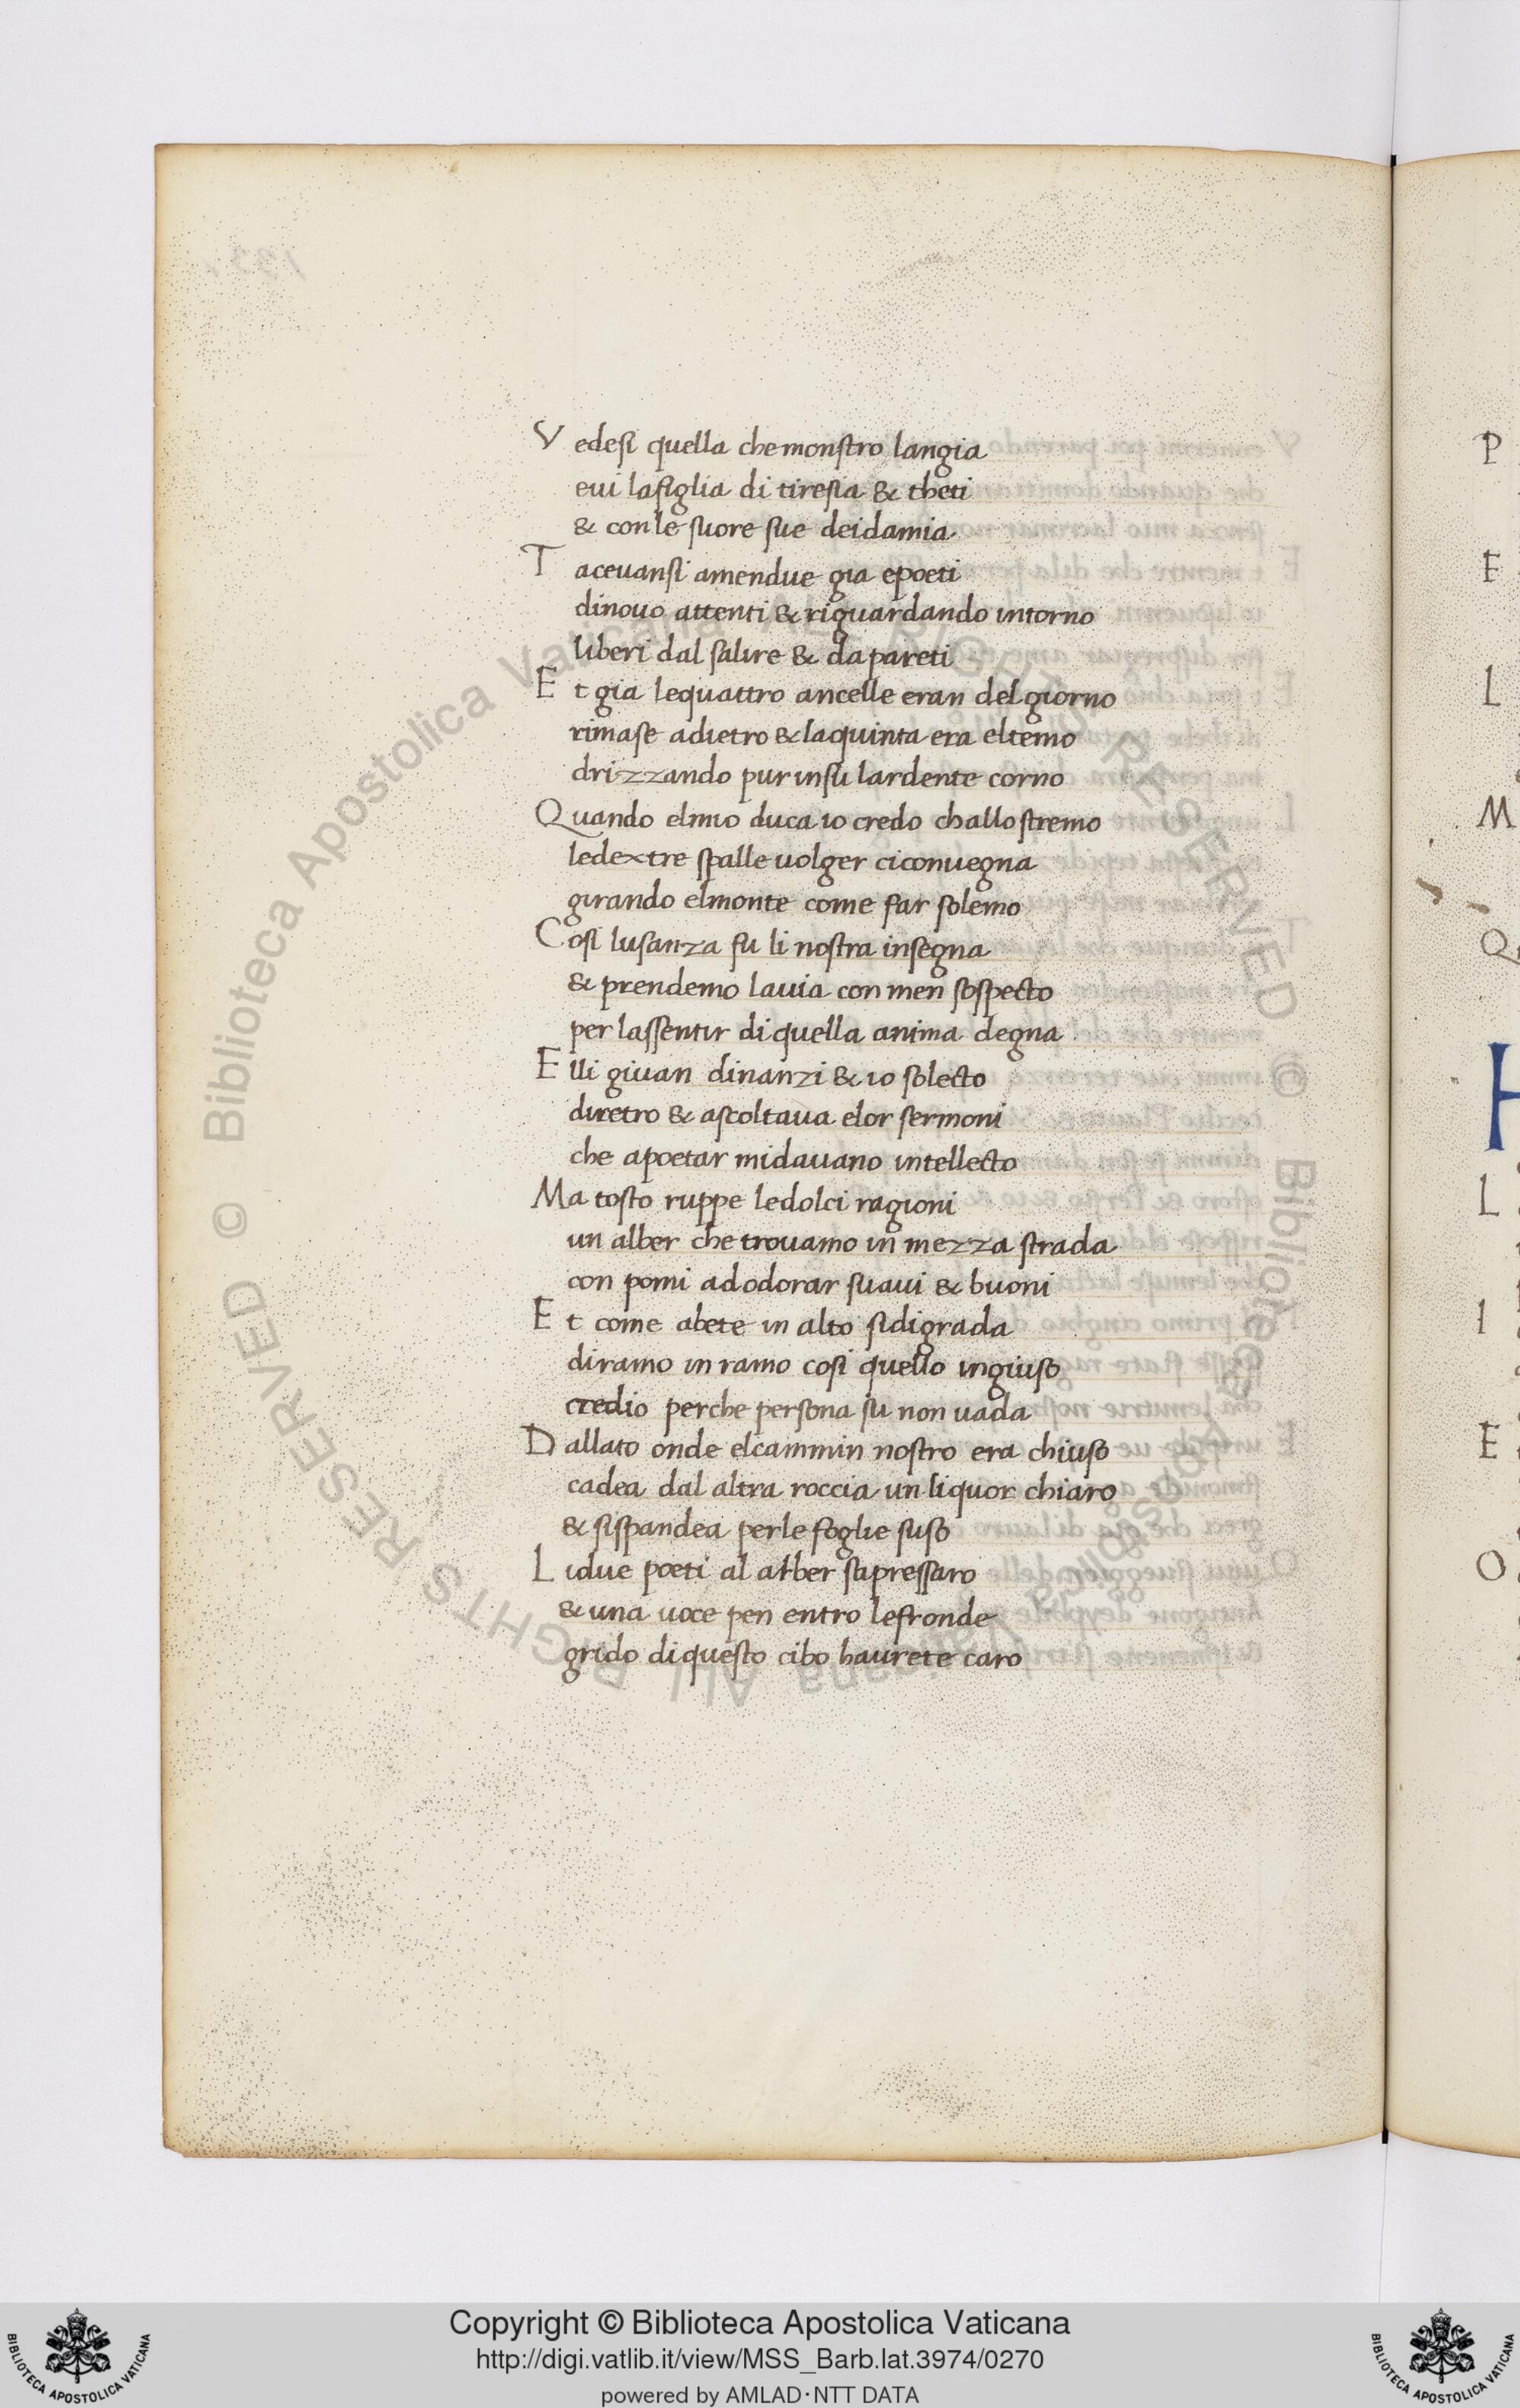 Vedesi quella che monstro langia
eui lafiglia di tiresia & theti
& con le suore sue deidamia
Taceuansi amendue gia epoeti
dinouo attenti & riguardando intorno
liberi dal salire & da pareti
Et gia lequattro ancelle eran del giorno
rimase adietro & laquinta era eltemo
drizzando pur insu lardente corno
Quando elmio duca io credo challo stremo
ledextre spalle uolger ci conuegna
girando elmonte come far solemo
Cosi lusanza fu li nostra insegna
& prendemo lauia con men sospecto
per lassentir di quella anima degna
Elli giuan dinanzi & io solecto
diretro & ascoltaua elor sermoni
che apoetar midauano intellecto
Ma tosto ruppe ledolci ragioni
un alber che trouamo in mezza strada
con pomi adodorar suaui & buoni
Et come abete in alto sidigrada
diramo in ramo cosi quello ingiuso
credio perche persona su non uada
Dallato onde elcammin nostro era chiuso
cadea dal altra roccia un liquor chiaro
& sispandea perle foglie suso
Lidue poeti al alber sapressaro
& una uoce pen entro lefronde
grido di questo cibo haurete caro
P
E
L
M
Q
H
L
I
E
O
Biblioteca Apostolica Vaticana ALL RIGHTS RESERVED © Biblioteca Apostolica Vaticana ALL RIGHTS RESERVED ©
Copyright © Biblioteca Apostolica Vaticana
http://digi.vatlib.it/view/MSS_Barb.lat.3974/0270
powered by AMLAD·NTT DATA
BIBLIOTECA APOSTOLICA VATICANA
BIBLIOTECA APOSTOLICA VATICANA